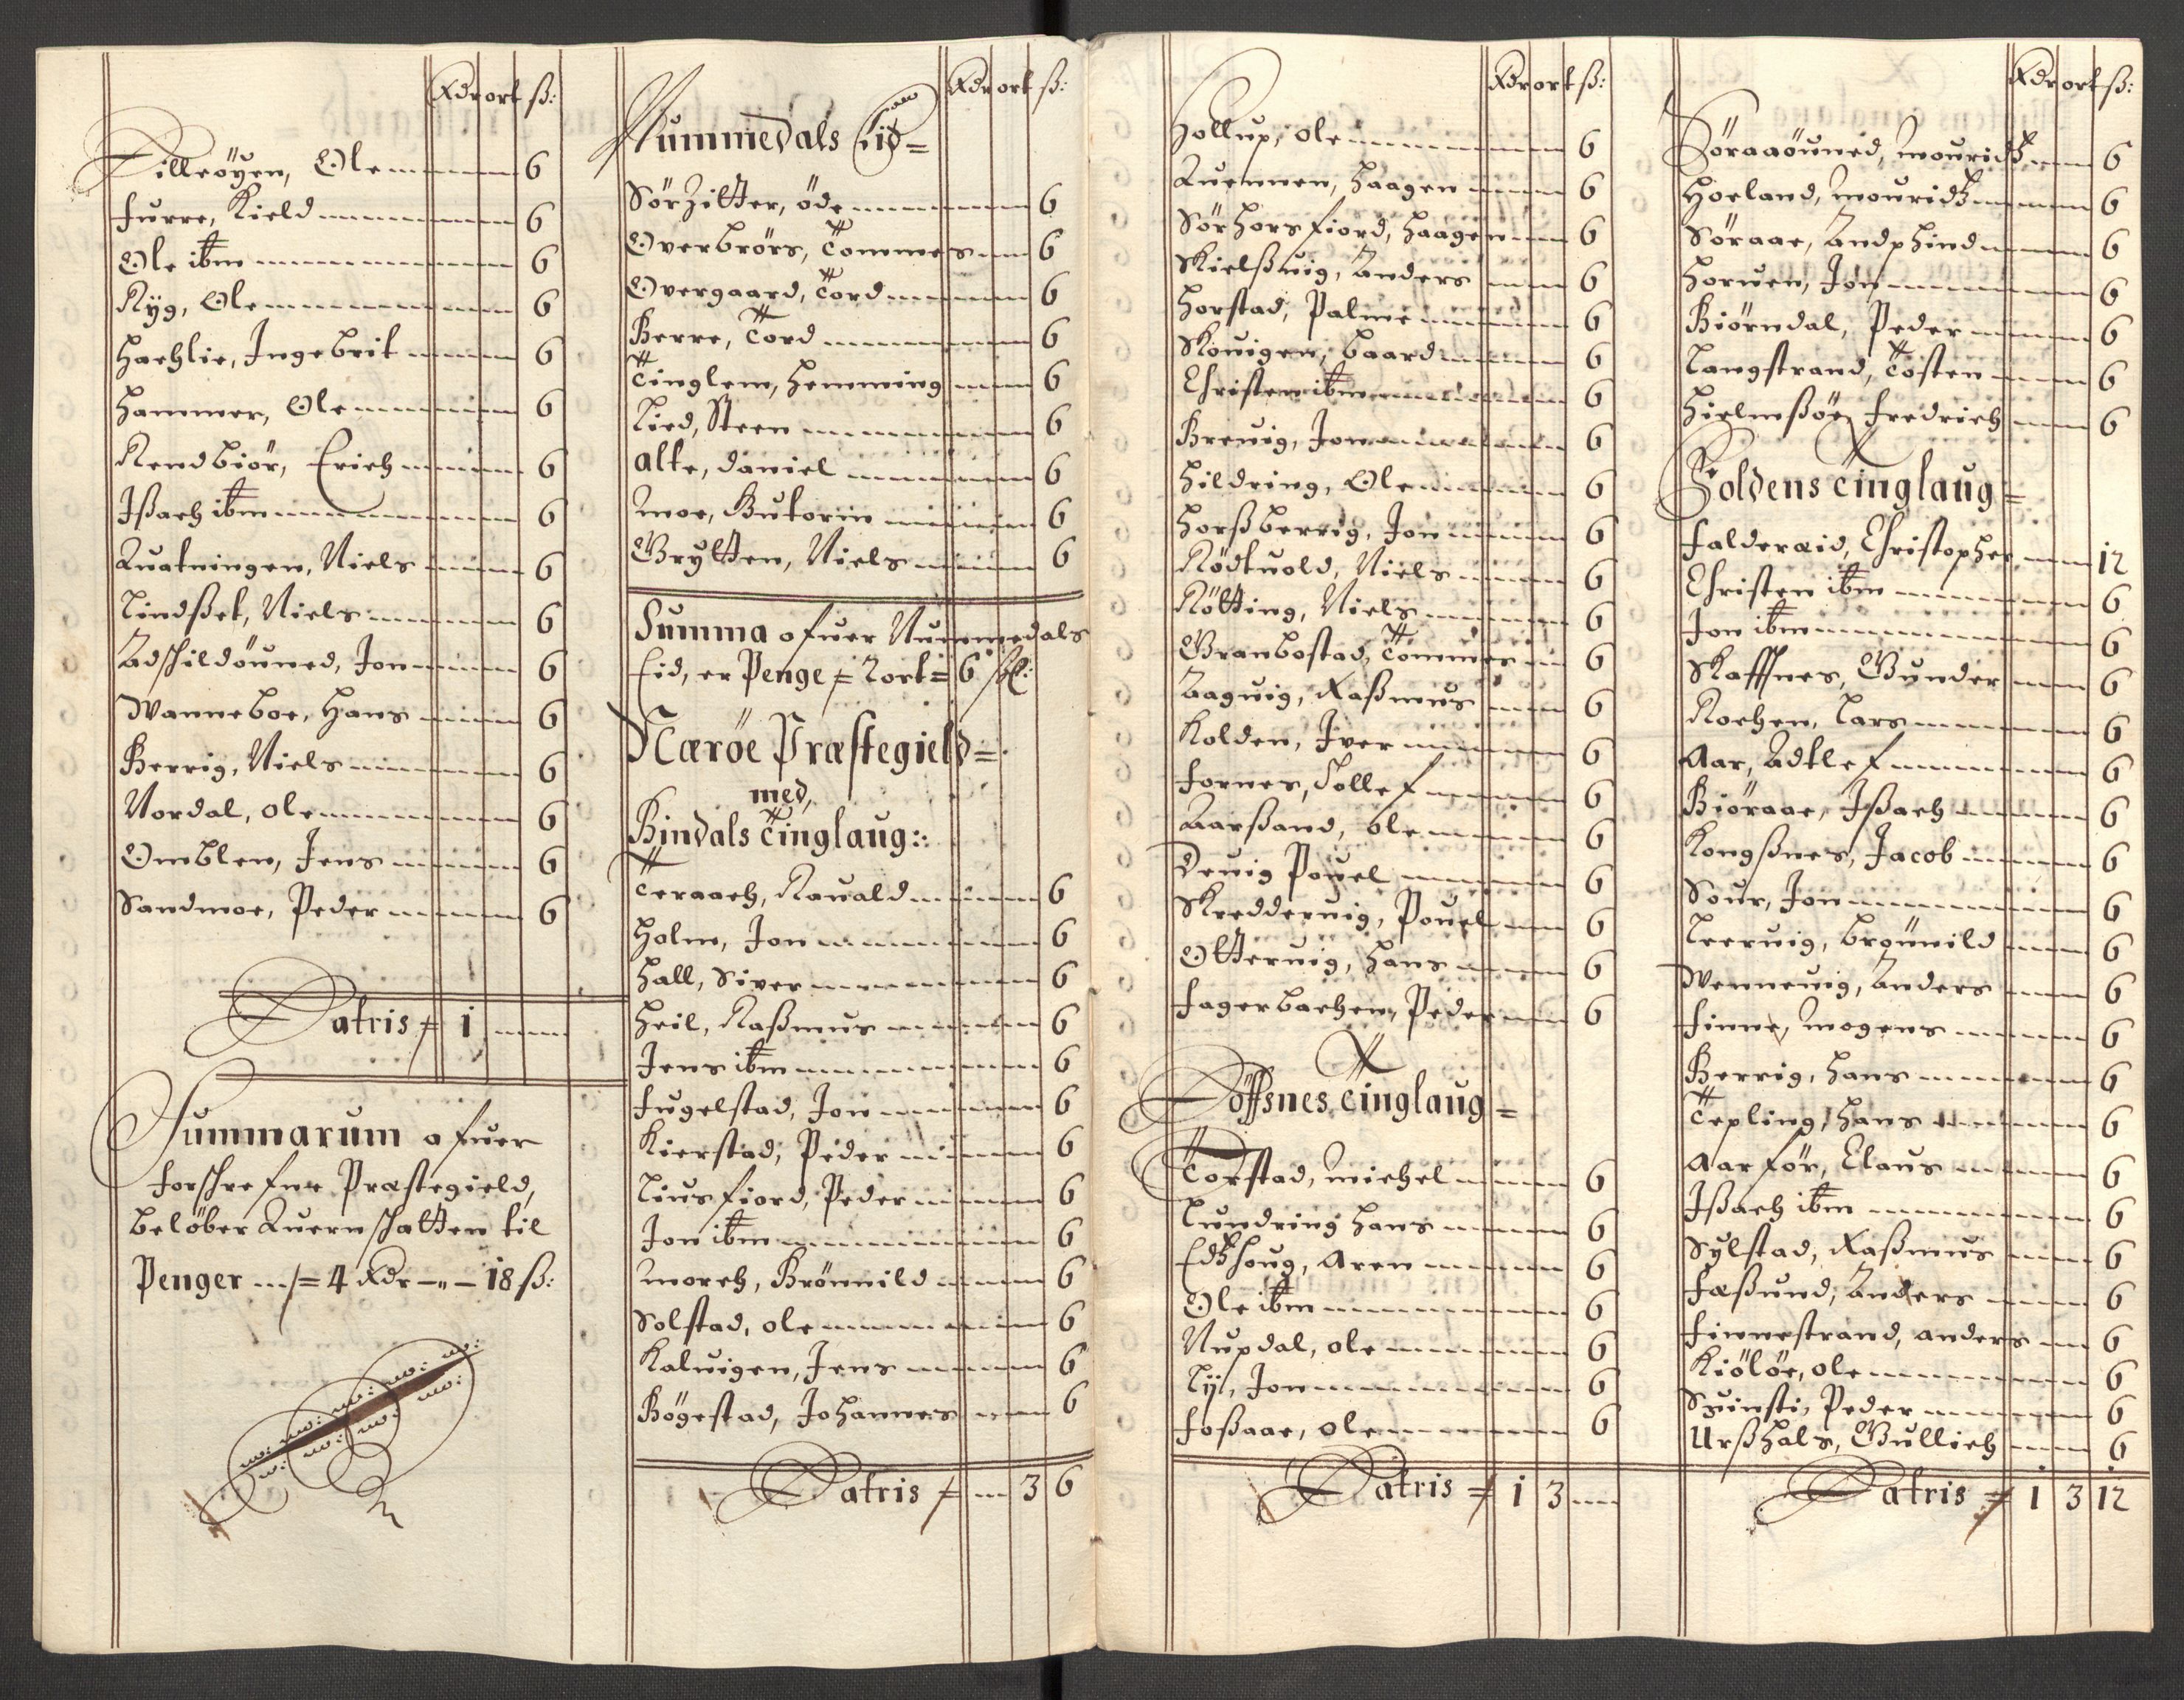 Rdr ort ß:
Tilleöyen, Ole 6
Furre, Kield 6
Ole ibm 6
Ryg, Ole 6
Hachlie, Ingebrit 6
Hammer, Ole 6
Rendbiör, Erich 6
Ißach ibm 6
Quatningen, Niels 6
Lindßet, Niels 6
Adschildöuned, Jon 6
Wanneboe, Hans 6
Berrig, Niels 6
Nordal, ole 6
Omblen, Jens 6
Sandmoe, Peder 6
Latris = 1
Summarum ofuer
forschrefne Præstegield,
belöber Quernschatten til
Penger = 4 Rdr - 18 ß:
Rdr ort ß:
Nummedals Eid =
Sör Zitter, öde 6
Overbrörs, Tommes 6
Overgaard, Tord 6
Berre, Tord 6
Tinglem, Hemming 6
Lied, Steen 6
alte, daniel 6
Moe, Gutorm 6
Grytten, Niels 6
Summa ofuer Nummedals
Eid, er Penge = 2 ort = 6 ßl:
Næröe Præstegield =
med,
Bindals Tinglaug:
Teraach, Rauald 6
Holm, Jon 6
Hall, Siver 6
Heil, Raßmus 6
Jens ibm 6
Fugelstad, Jon 6
Kierstad, Peder 6
Liusfiord, Peder 6
Jon ibm 6
Moreh, Brönnild 6
Solstad, ole 6
Kaluigen, Jens 6
Bögestad, Johannes 6
Latris = 3 6
Rdr ort ß:
Hollup, ole 6
Quennen, Haagen 6
Sör Horsfiord, Haagen 6
Skielßuig, Anders 6
Horstad, Palme 6
Skouigen, baard 6
Christen ibm 6
Breuig, Jon 6
Hildring, Ole 6
Horßberrig, Jon 6
Rödtuold, Niels 6
Rötting, Niels 6
Granbostad, Tommes 6
Aaguig, Raßmus 6
Kolden, Iver 6
Fornes, Tollef 6
Aarßand, ole 6
Deuig Pouel 6
Skredderuig, Pouel 6
Otteruig, Hans 6
Fagerbachen, Peder 6
Töffsnes Tinglaug =
Torstad, Michel 6
Lundring Hans 6
Edtzhoug, Aren 6
Ole ibm 6
Nupdal, ole 6
Lÿ, Jon 6
Foßaae, ole 6
Latris = 1 3
Rdr ort ß:
Söraaöuned, Mouridtz 6
Hoeland, Mouridtz 6
Söraae, Andphind 6
Horuen, Jon 6
Biörndal, Peder 6
Langstrand, Tosten 6
Hielmßöe, Fredrich 6
Foldens Tinglaug =
Falderæid, Christopher 12
Christen ibm 6
Jon ibm 6
Skaffnes, Gunder 6
Rochen, Lars 6
Aar, Adtlef 6
Biöraae, Ißach 6
Kongßnes, Jacob 6
Sour, Jon 6
Leeruig, brönnild 6
Wenneuig, Anders 6
Finne, Mogens 6
Berrig, Hans 6
Tepling, Hans 6
Aarför, Claus 6
Ißach ibm 6
Sylstad, Raßmus 6
Fæßund, Anders 6
Finnestrand, anders 6
Kiölöe, ole 6
Suinsti, Peder 6
Urßhals, Gullich 6
Latris = 1 3 12